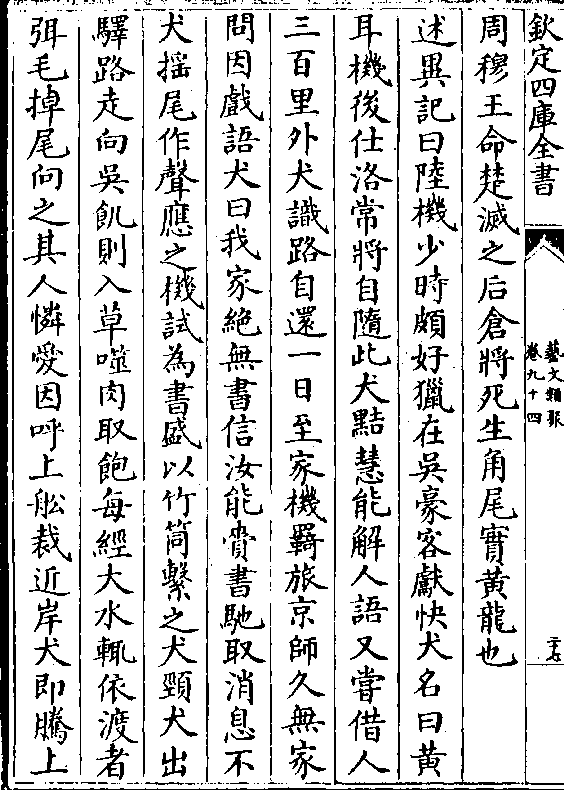 欽定四庫全書
藝文類聚
卷九十四
二十七
周穆王命楚滅之后倉將死生角尾實黃龍也
述異記曰陸機少時頗好獵在吳豪客獻快犬名曰黃
耳機後仕洛常將自隨此犬黠慧能解人語又嘗借人
三百里外犬識路自還一日至家機羇旅京師久無家
問因戲語犬曰我家絶無書信汝能賫書馳取消息不
犬揺尾作聲應之機試為書盛以竹筒繫之犬頸犬出
驛路走向吳飢則入草噬肉取飽每經大水輒依渡者
弭毛掉尾向之其人憐愛因呼上船裁近岸犬即騰上